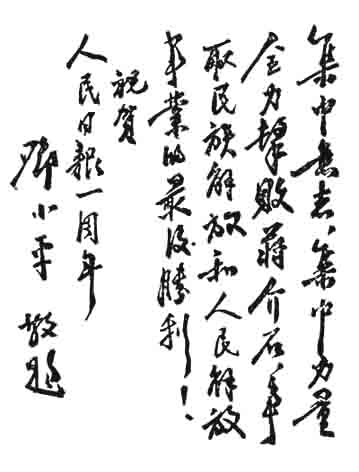 集中意志、集中力量
全力擊敗蔣介石、爭
取民族解放和人民解放
事業的最後勝利！
祝賀
人民日報一周年
鄧小平 敬題